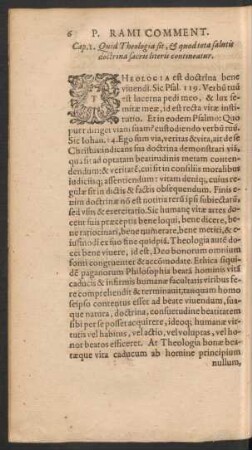 6 P. RAMI COMMENT.
Cap. 1. Quid Theologia sit, & quod tota salutis
doctrina sacris literis contineatur.
THEOLOGIA est doctrina bene
vivendi. Sic Psal. 119. Verbū tuū
est lucerna pedi meo, & lux se-
mitæ meæ, id est recta vitæ insti-
tutio. Et in eodem Psalmo: Quo
puer diriget viam suam? custodiendo verbū tuū.
Sic Iohan. 14. Ego sum via, veritas & vita, ait de se
Christus: indicans sua doctrina demonstrari viā,
qua sit ad optatam beatitudinis metam conten-
dendum: & veritatē, cui sit in consilijs moralibus
iudicijsq; assentiendum: vitam deniq;, cuius re-
gulæ sit in dictis & factis obsequendum. Finis e-
nim doctrinæ nō est notitia rerū ipsi subiectarū,
sed usus & exercitatio. Sic humanę vitæ artes dē-
cent suis præceptis bene loqui, bene dicere, be-
ne ratiocinari, bene numerare, bene metiri, & e-
iusmodi ex suo fine quidpiā. Theologia autē do-
cet bene vivere, id est, Deo bonorum omnium
fonti congruenter & accōmodate. Ethica siqui-
dē paganorum Philosophia beatā hominis vitā
caducis & infirmis humanæ facultatis viribus fe-
re comprehendit & terminavit, tanquam homo
seipso contentus esset ad beate vivendum, sua-
que natura, doctrina, consuetudine beatitatem
sibi per se posset acquirere, ideoq; humanæ vir-
tutis vel habitus, vel actio, vel voluptas, vel ho-
nor beatos efficeret. At Theologia bonæ bea-
tæque vitæ caducum ab homine principium
nullum,